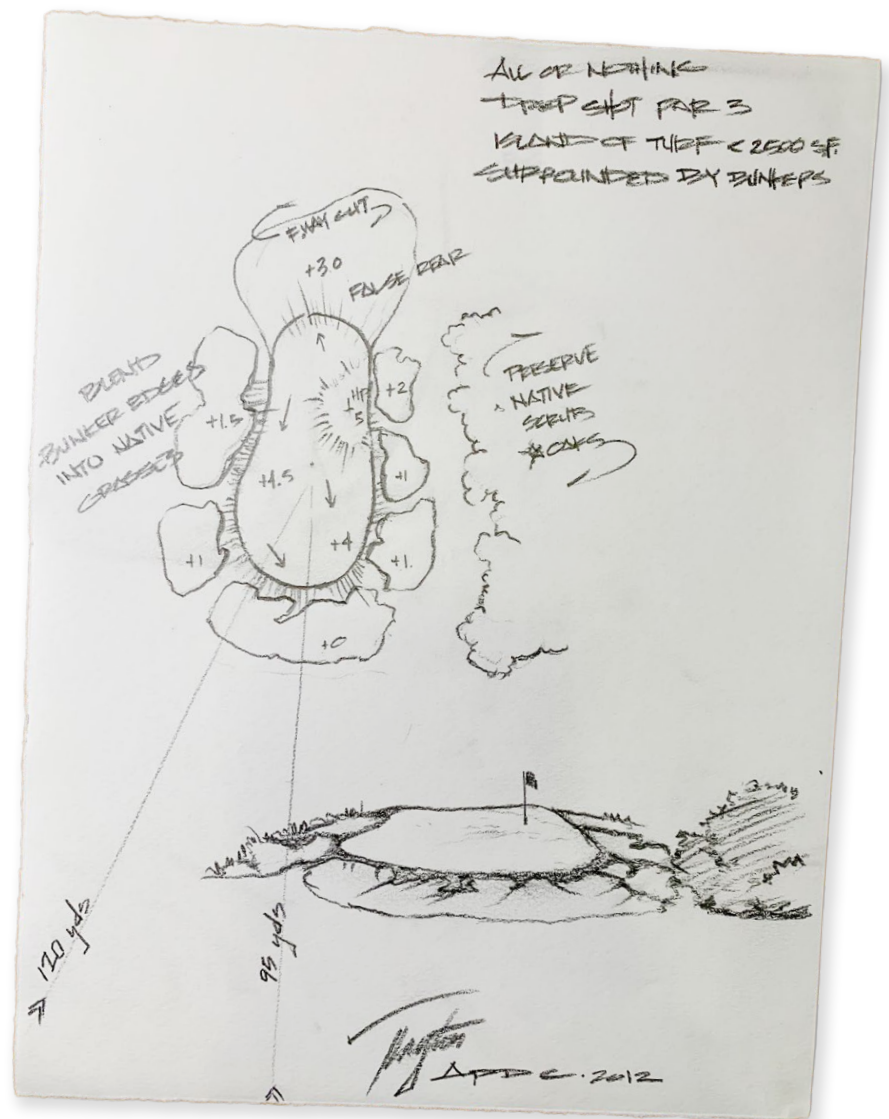 ALL OR NOTHING
DROP SHOT PAR 3
ISLAND OF TURF < 2500 SF.
SURROUNDED BY BUNKERS
FWAY CUT
+3.0
FALSE REAR
BLEND
BUNKER EDGES
INTO NATIVE
GRASSES
PERSERVE
NATIVE
SCRUB
OAKS
+1.5
HP
+5
+2
+4.5
+1
+4
+1
+1.
+0
120 yds
95 yds
2012